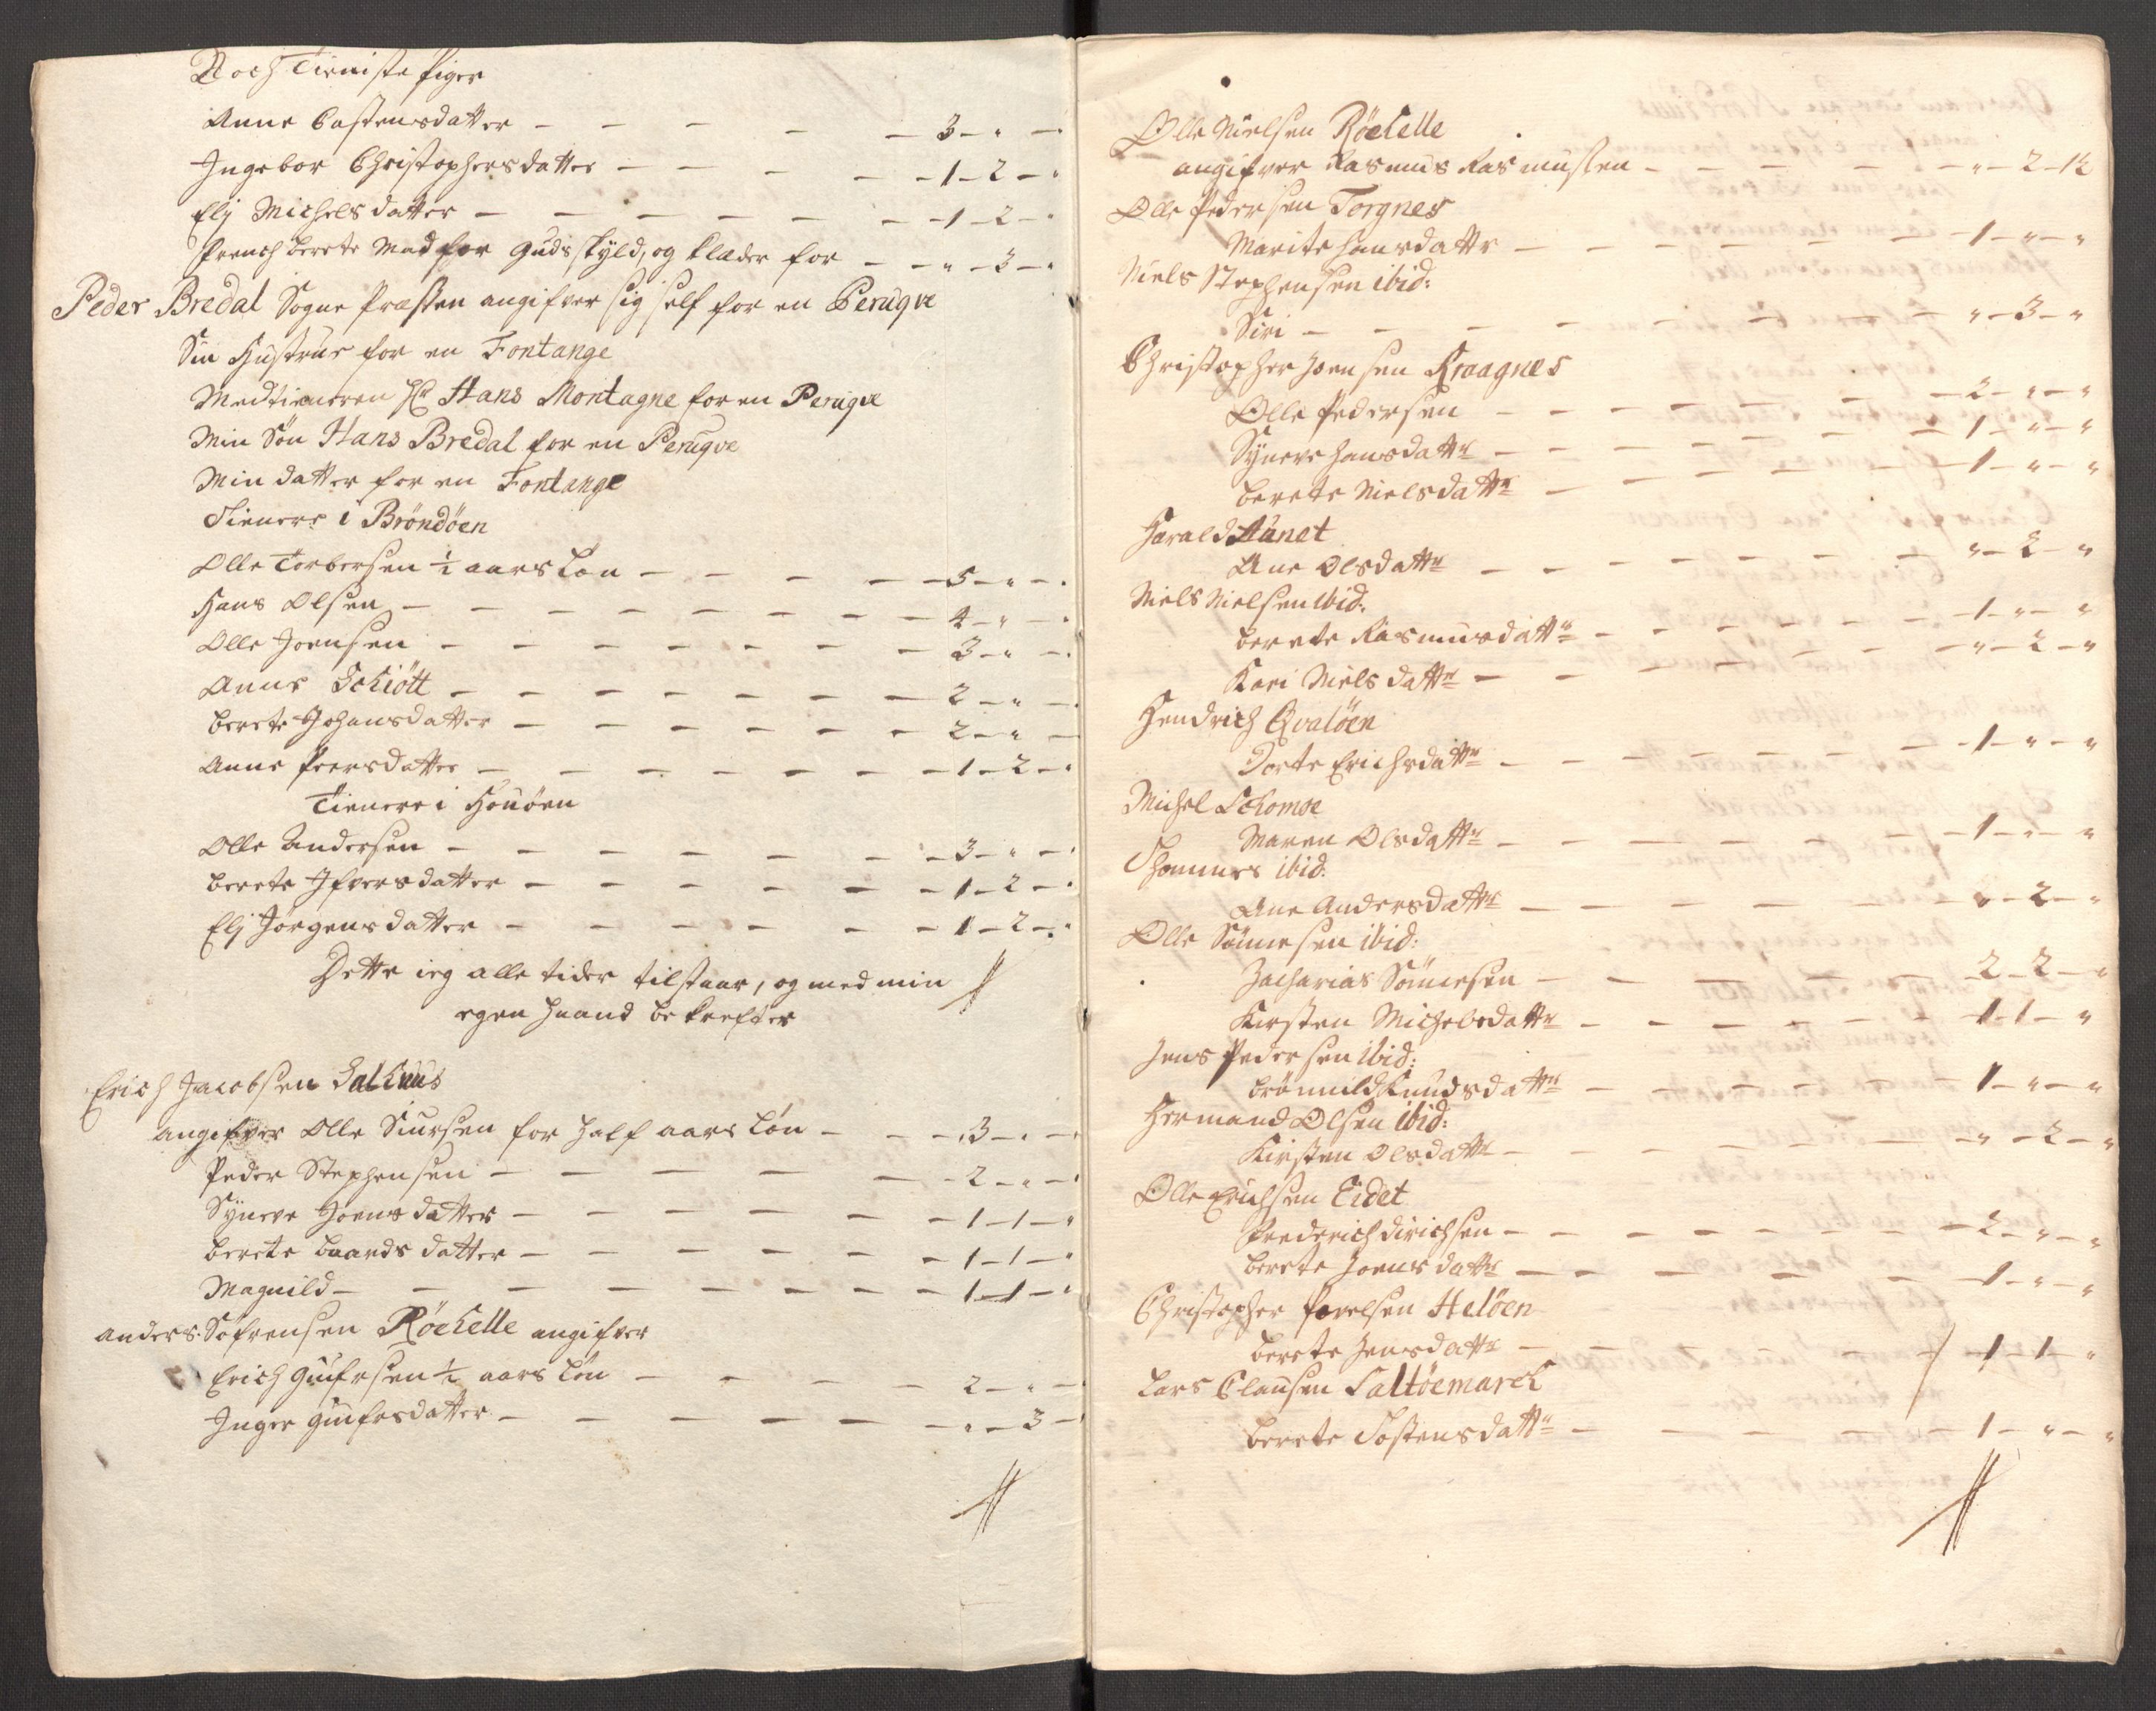 Noch Tieniste Piger
Anne Castensdatter - - - - - 3 - " -
Ingebor Christophersdatter - - - - 1 - 2 - "
Elj Michelsdatter - - - - - - 1 - 2 - "
berete Mad for Guds skyld, og klæder for - - " - 3 - "
Peder Bredal Sogne Præsten angifver sig self for en Perugve
Sin Hustrue for en Fontange
Medtieneren Hr Hans Montagne for en Perugve
Min Søn Hans Bredal for en Perugve
Min datter for en Fontange
Tienere i Bröndöen
Olle Torbersen ½ aars Løn - - - - 5 - " -
Hans Olsen - - - - - - - 4 - " -
Olle Joensen - - - - - - - 3 - " -
Anne Schiött - - - - - - - 2 - " -
berete Johansdatter - - - - - - 2 - " -
Anne Peersdatter - - - - - - - 1 - 2 - "
Tienere i Houöen
Olle Andersen - - - - - - - 3 - " -
berete Ifversdatter - - - - - - 1 - 2 - "
Elj Jörgensdatter - - - - - - 1 - 2 - "
Dette ieg alle tider tilstaar, og med min
egen Haand bekrefter
Erich Jacobsen Salhuus
angifver Olle Siursen for half aars Løn - - - 3 - " -
Peder Stephensen - - - - - - 2 - " -
Syneve Joensdatter - - - - - - 1 - 1 - "
berete baardsdatter - - - - - - 1 - 1 - "
Magnild - - - - - - - - 1 - 1 - "
Anders Söfrensen Röekelle angifver
Erich Guifrsen ½ aars Løn - - - - 2 - " -
Inger Guifrsdatter - - - - - - " - 3 -
Olle Nielsen Röekelle
angifver Rasmus Rasmussen - - - - - - " - 2 - 12
Olle Pedersen Torgnes
Marite Hansdattr - - - - - - 1 - " - "
Niels Stephensen ibid:
Siri - - - - - - - - " - 3 - "
Christopher Joensen Kraagnes
Olle Pedersen - - - - - - 2 - " - "
Syneve Hansdattr - - - - - - 1 - " - "
berete Nielsdattr - - - - - - 1 - " - "
Harald Aunet
Ane Olsdattr - - - - - - " - 2 - "
Niels Nielsen ibid:
berete Rasmusdattr - - - - - - 1 - " - "
Kari Nielsdattr - - - - - - " - 2 - "
Hendrich Qvalöen
Dorte Erichsdattr - - - - - - 1 - " - "
Michel Schomoe
Maren Olsdattr - - - - - - 1 - " - "
Thommes ibid:
Ane Andersdattr - - - - - - " - 2 - "
Olle Sönnesen ibid:
Zacharias Sönnesen - - - - - 2 - 2 - "
Kirsten Michelsdattr - - - - - - 1 - 1 - "
Jens Pedersen ibid:
brönnild Knudsdattr - - - - - - 1 - " - "
Hermand Olsen ibid:
Kirsten Olsdattr - - - - - - " - 2 - "
Olle Erichsen Eidet
Frederich Dirichsen - - - - - - 2 - " - "
berete Joensdattr - - - - - - 1 - " - "
Christopher Povelsen Helöen
berete Jensdattr - - - - - - 1 - 1 - "
Lars Clausen Saltöemarck
berete Tostensdattr - - - - - 1 - " - "